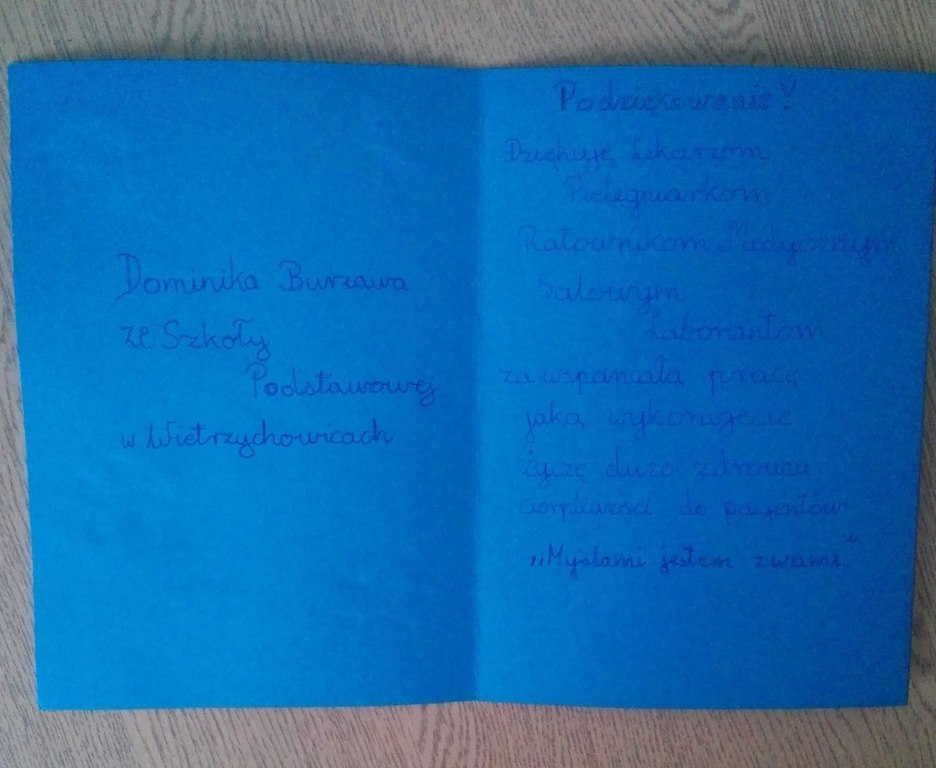 Dominika Burzawa
ze Szkoły
Podstawowej
w Wietrzychowicach
Podziękowanie!
Dziękuje Lekarzom
Pielegniarkom
Ratownikom Medycznym
Salowym
Laborantom
za wspaniałą pracę
jaką wykonujecie
Życzę dużo zdrowia
cierpliwości do pacjentów
„Myślami jestem z wami"